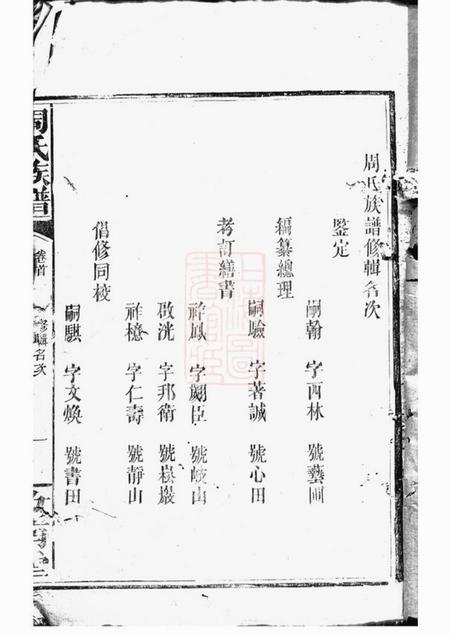 周氏族譜修輯名次
鑒定
嗣翰 字西林 號藝圃
編纂總理
嗣驗 字著誠 號心田
考訂繕書
祚鳳 字 臣 號岐山
啟洸 字邦衛 號崧巖
祚檍 字仁壽 號靜山
倡修同校
嗣騏 字文煥 號書田
周氏族譜
卷首
修輯名次